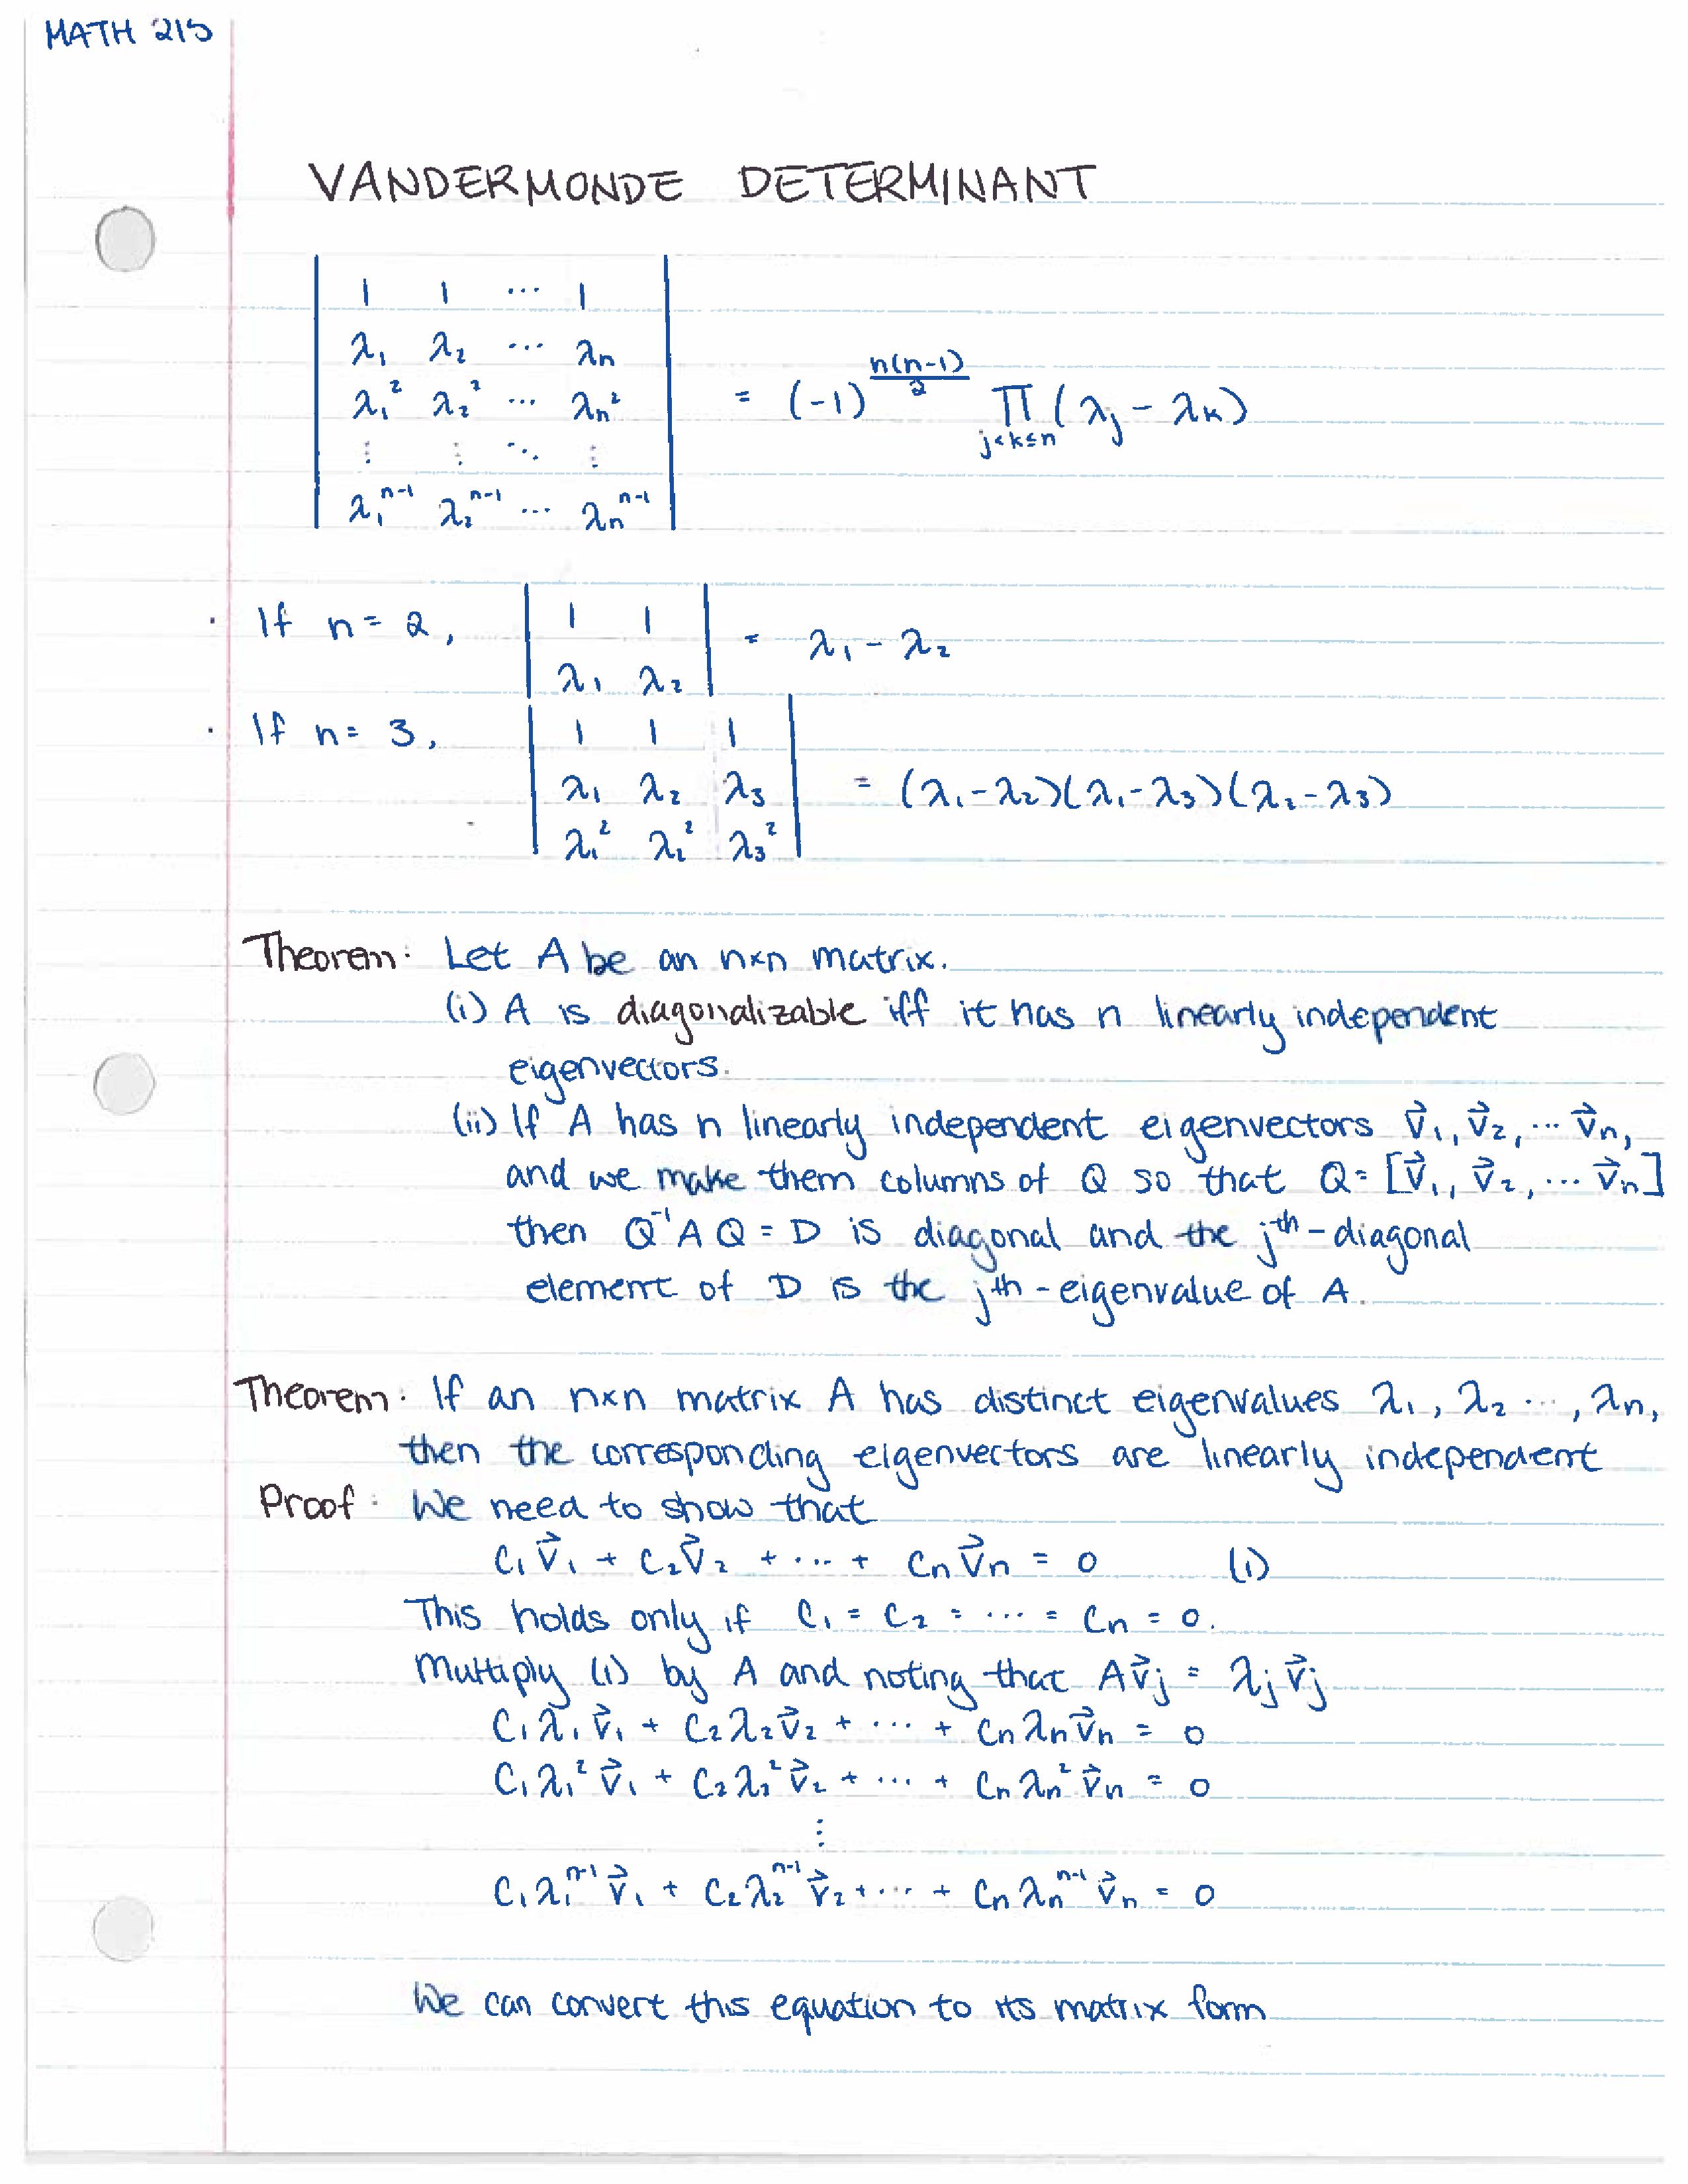 MATH 215
VANDERMONDE DETERMINANT
| 1 1 ⋯ 1 |
| λ₁ λ₂ ⋯ λₙ |
| λ₁² λ₂² ⋯ λₙ² | = (-1)^(n(n-1)/2) ∏_{j<k≤n} (λⱼ - λₖ)
| ⋮ ⋮ ⋱ ⋮ |
| λ₁ⁿ⁻¹ λ₂ⁿ⁻¹ ⋯ λₙⁿ⁻¹ |
· If n = 2, | 1 1 | = λ₁ - λ₂
| λ₁ λ₂ |
· If n = 3, | 1 1 1 |
| λ₁ λ₂ λ₃ | = (λ₁-λ₂)(λ₁-λ₃)(λ₂-λ₃)
| λ₁² λ₂² λ₃² |
Theorem: Let A be an n×n matrix.
(i) A is diagonalizable iff it has n linearly independent
eigenvectors.
(ii) If A has n linearly independent eigenvectors v⃗₁, v⃗₂, ⋯ v⃗ₙ,
and we make them columns of Q so that Q = [v⃗₁, v⃗₂, ⋯ v⃗ₙ]
then Q⁻¹AQ = D is diagonal and the jᵗʰ-diagonal
element of D is the jᵗʰ-eigenvalue of A.
Theorem: If an n×n matrix A has distinct eigenvalues λ₁, λ₂ ⋯, λₙ,
then the corresponding eigenvectors are linearly independent
Proof: We need to show that
C₁v⃗₁ + C₂v⃗₂ + ⋯ + Cₙv⃗ₙ = 0 (1)
This holds only if C₁ = C₂ = ⋯ = Cₙ = 0.
Multiply (1) by A and noting that Av⃗ⱼ = λⱼv⃗ⱼ
C₁λ₁v⃗₁ + C₂λ₂v⃗₂ + ⋯ + Cₙλₙv⃗ₙ = 0
C₁λ₁²v⃗₁ + C₂λ₂²v⃗₂ + ⋯ + Cₙλₙ²v⃗ₙ = 0
⋮
C₁λ₁ⁿ⁻¹v⃗₁ + C₂λ₂ⁿ⁻¹v⃗₂ + ⋯ + Cₙλₙⁿ⁻¹v⃗ₙ = 0
We can convert this equation to its matrix form